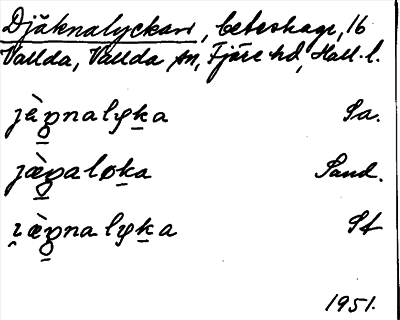 Djäknalyckan, beteshage, 16
Vallda, Vallda sn, Fjäre hd, Hall. l.
jæ̀gnalyka Sa.
jæ̀galøka Sand.
ı̯æ̀gnalyka St
1951.